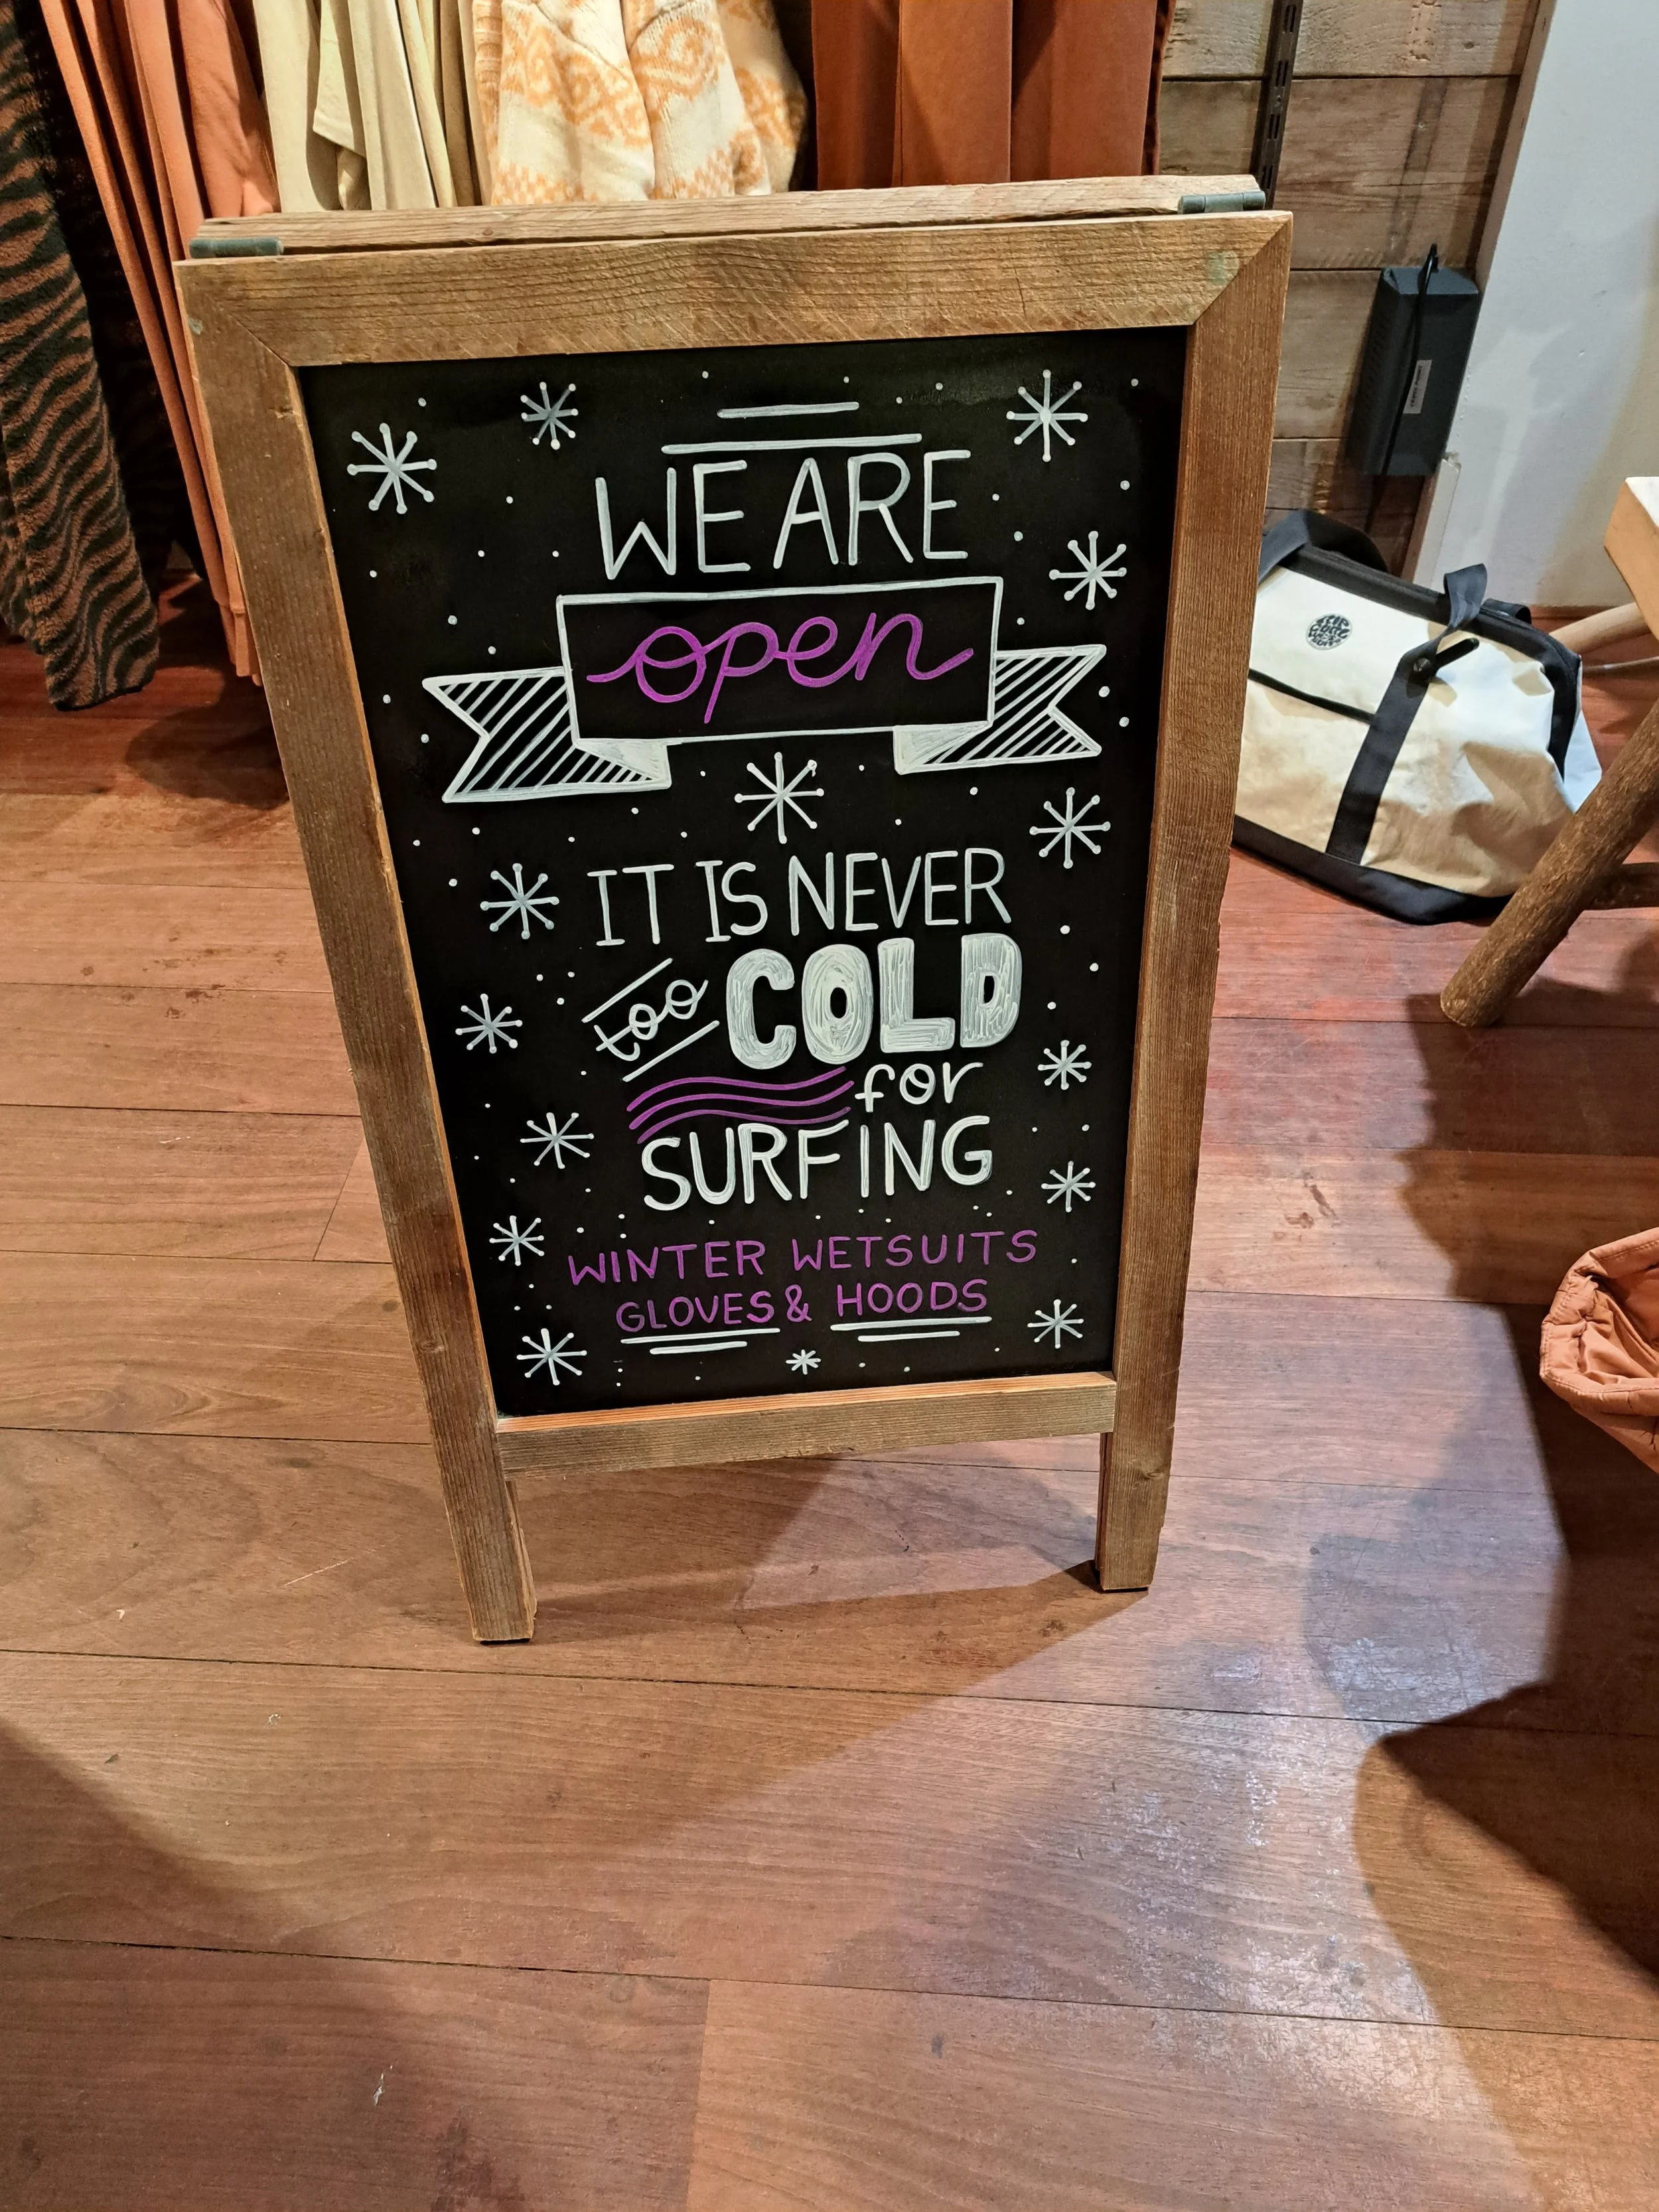 WE ARE
open
IT IS NEVER
too COLD
for
SURFING
WINTER WETSUITS
GLOVES & HOODS